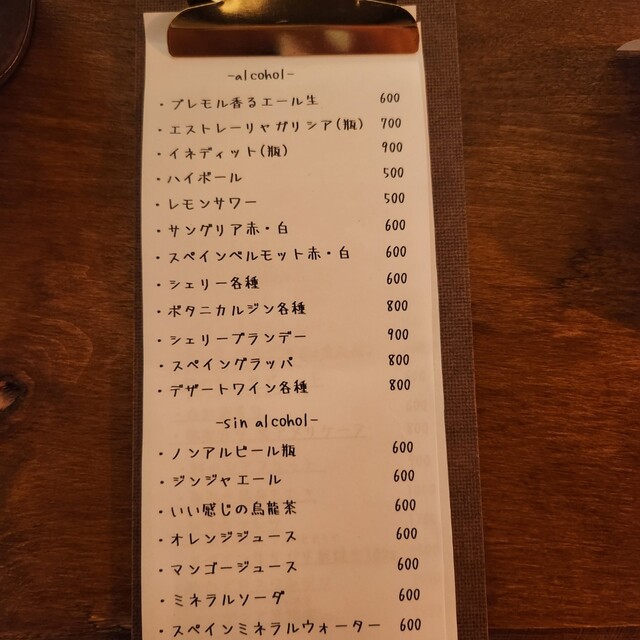 -alcohol-
・プレモル香るエール生 600
・エストレーリャガリシア(瓶) 700
・イネディット(瓶) 900
・ハイボール 500
・レモンサワー 500
・サングリア赤・白 600
・スペインベルモット赤・白 600
・シェリー各種 600
・ボタニカルジン各種 800
・シェリーブランデー 900
・スペイングラッパ 800
・デザートワイン各種 800
-sin alcohol-
・ノンアルビール瓶 600
・ジンジャエール 600
・いい感じの烏龍茶 600
・オレンジジュース 600
・マンゴージュース 600
・ミネラルソーダ 600
・スペインミネラルウォーター 600